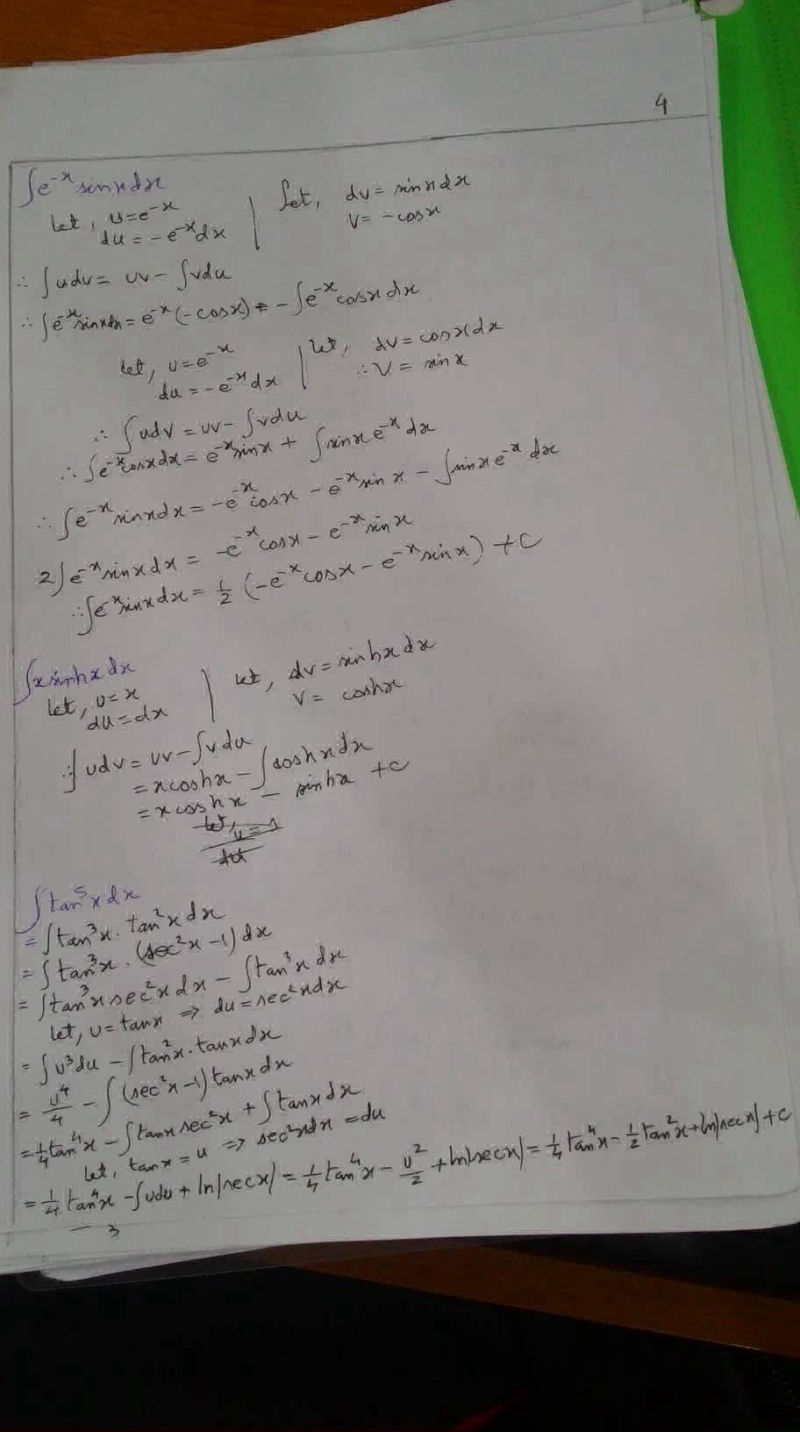 4
∫e⁻ˣ sinx dx
Let, u=e⁻ˣ | Let, dv = sinx dx
du = -e⁻ˣdx | v = -cosx
∴ ∫udv = uv - ∫vdu
∴ ∫e⁻ˣsinxdx = e⁻ˣ(-cosx) - ∫e⁻ˣcosx dx
let, u=e⁻ˣ | let, dv = cosx dx
du = -e⁻ˣ dx | ∴ v = sin x
∴ ∫udv = uv - ∫vdu
∴ ∫e⁻ˣcosx dx = e⁻ˣsinx + ∫sinx e⁻ˣ dx
∴ ∫e⁻ˣ sinx dx = -e⁻ˣcosx - e⁻ˣsin x - ∫sinx e⁻ˣ dx
2∫e⁻ˣsinx dx = -e⁻ˣcosx - e⁻ˣsinx
∴ ∫e⁻ˣsinx dx = 1/2 (-e⁻ˣcosx - e⁻ˣsinx) + C
∫x sinhx dx
let, u=x | let, dv = sinhx dx
du=dx | v = coshx
∴ ∫udv = uv - ∫vdu
= x coshx - ∫coshx dx
= x coshx - sinhx + C
let, u = 1
du
∫tan⁵x dx
= ∫tan³x · tan²x dx
= ∫tan³x · (sec²x - 1) dx
= ∫tan³x sec²x dx - ∫tan³x dx
let, u = tanx ⇒ du = sec²xdx
= ∫u³du - ∫tan²x · tanx dx
= u⁴/4 - ∫(sec²x - 1) tanx dx
= 1/4 tan⁴x - ∫tanx sec²x + ∫tanx dx
let, tanx = u ⇒ sec²x dx = du
= 1/4 tan⁴x - ∫udu + ln|secx| = 1/4 tan⁴x - u²/2 + ln|secx| = 1/4 tan⁴x - 1/2 tan²x + ln|secx| + C
3